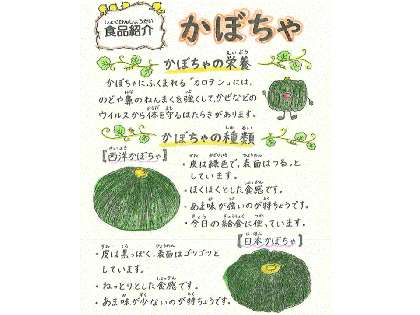 しょくひんしょうかい
食品紹介
かぼちゃ
かぼちゃの栄養
かぼちゃにふくまれる"カロテン"には、
のどや鼻のねんまくを強くして、かぜなどの
ウイルスから体を守るはたらきがあります。
かぼちゃの種類
【西洋かぼちゃ】
・皮は緑色で、表面はつるっと
しています。
・ほくほくとした食感です。
・あま味が強いのが特ちょうです。
・今日の給食に使っています。
【日本かぼちゃ】
・皮は黒っぽく、表面はゴリゴリと
しています。
・ねっとりとした食感です。
・あま味が少ないのが特ちょうです。